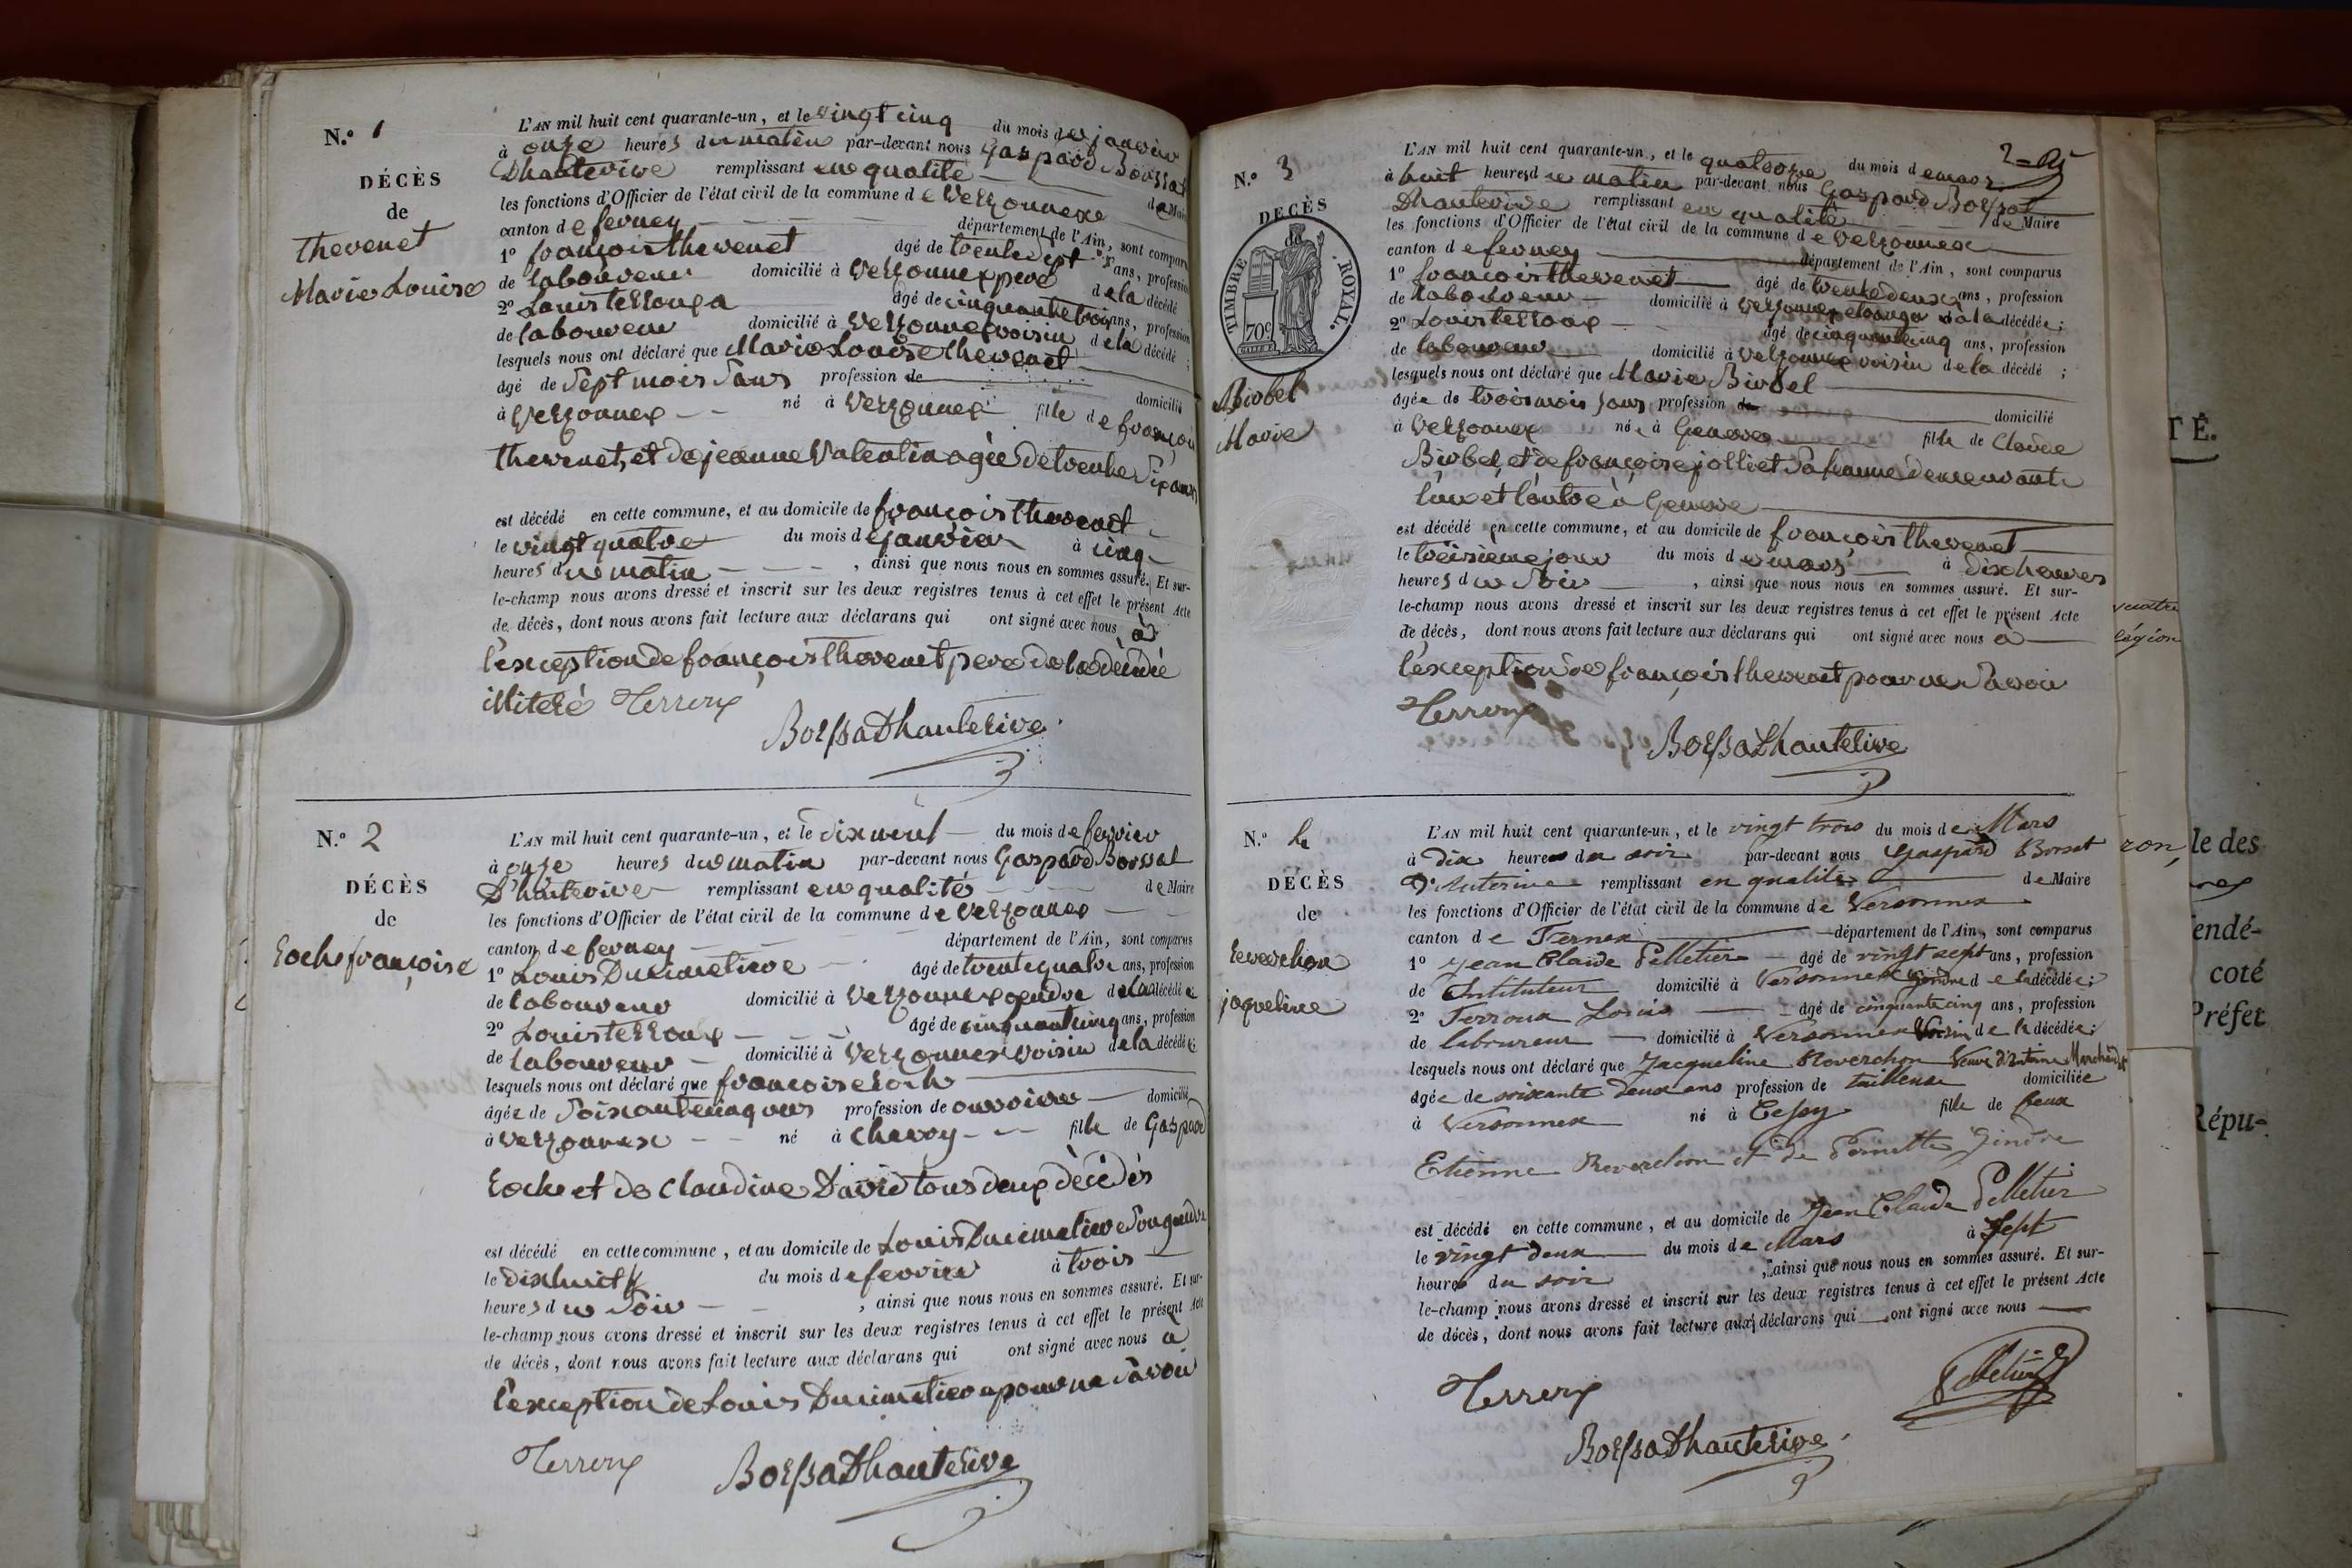 N.º 1
DÉCÈS
de
thevenet
Marie Louise
L'AN mil huit cent quarante-un, et le vingt cinq du mois de janvier
à onze heures du matin par-devant nous Gaspard Boissat
Dhauterive remplissant en qualité de Maire
les fonctions d'Officier de l'état civil de la commune de Versonnex
canton de ferney département de l'Ain, sont comparus
1º françois thevenet âgé de trente sept ans, profession
de laboureur domicilié à Versonnex pere de la décédé
2º Louis terroux âgé de cinquante trois ans, profession
de laboureur domicilié à Versonnex voisin de la décédé ;
lesquels nous ont déclaré que Marie Louise thevenet
âgé de Sept mois Sans profession de domicilié
à Versonnex né à Versonnex fille de françois
thevenet, et de jeanne Valentin agée de trente Six ans
est décédé en cette commune, et au domicile de françois thevenet
le vingt quatre du mois de janvier à cinq
heures du matin , ainsi que nous nous en sommes assuré. Et sur-
le-champ nous avons dressé et inscrit sur les deux registres tenus à cet effet le présent Acte
de décès, dont nous avons fait lecture aux déclarans qui ont signé avec nous à
l'exception de françois thevenet pere de la décédée
illiteré Terroux
Boissat Dhauterive
N.º 2
DÉCÈS
de
Roch françoise
L'AN mil huit cent quarante-un, et le dix neuf du mois de fevrier
à onze heures du matin par-devant nous Gaspard Boissat
D'hauterive remplissant en qualité de Maire
les fonctions d'Officier de l'état civil de la commune de Versonnex
canton de ferney département de l'Ain, sont comparus
1º Louis Ducimetiere âgé de trente quatre ans, profession
de laboureur domicilié à Versonnex gendre de la décédée
2º Louis terroux âgé de cinquante cinq ans, profession
de laboureur domicilié à Versonnex voisin de la décédée
lesquels nous ont déclaré que françoise Roch
âgée de Soixante cinq ans profession de ouvriere domicilié
à Versonnex né à Chevry fille de Gaspard
Roch et de Claudine David tous deux décédés
est décédé en cette commune, et au domicile de Louis Ducimetiere Son gendre
le dix huit du mois de fevrier à trois
heures du Soir , ainsi que nous nous en sommes assuré. Et sur-
le-champ nous avons dressé et inscrit sur les deux registres tenus à cet effet le présent Acte
de décès, dont nous avons fait lecture aux déclarans qui ont signé avec nous à
l'exception de Louis Ducimetiere pour ne Savoir
Terroux Boissat Dhauterive
N.º 3
DÉCÈS
de
TIMBRE ROYAL.
70c
Birbel
Marie
L'AN mil huit cent quarante-un, et le quatorze du mois de mars
à huit heures du matin par-devant nous Gaspard Boissat
Dhauterive remplissant en qualité de Maire
les fonctions d'Officier de l'état civil de la commune de Versonnex
canton de ferney département de l'Ain, sont comparus
1º françois thevenet âgé de trente deux ans, profession
de laboureur domicilié à Versonnex etranger de la décédée ;
2º Louis terroux âgé de cinquante cinq ans, profession
de laboureur domicilié à Versonnex voisin de la décédé ;
lesquels nous ont déclaré que Marie Birbel
âgée de trois mois Sans profession de domicilié
à Versonnex née à Geneve fille de Claude
Birbel, et de françoise jolliet Sa femme demeurants
l'un et l'autre à Geneve
est décédé en cette commune, et au domicile de françois thevenet
le treisieme jour du mois de mars à dix heures
heures du Soir , ainsi que nous nous en sommes assuré. Et sur-
le-champ nous avons dressé et inscrit sur les deux registres tenus à cet effet le présent Acte
de décès, dont nous avons fait lecture aux déclarans qui ont signé avec nous à
l'exception de françois thevenet pour ne Savoir
Terroux
Boissat Dhauterive
N.º 4
DÉCÈS
de
Reverchon
jaqueline
L'AN mil huit cent quarante-un, et le vingt trois du mois de Mars
à dix heures du soir par-devant nous Gaspard Borsat
D'Auterive remplissant en qualité de Maire
les fonctions d'Officier de l'état civil de la commune de Versonnex
canton de Fernex département de l'Ain, sont comparus
1º Jean Claude Pelletier âgé de vingt sept ans, profession
de Instituteur domicilié à Versonnex gendre de la décédée ;
2º Terroux Louis âgé de cinquante cinq ans, profession
de laboureur domicilié à Versonnex Voisin de la décédée ;
lesquels nous ont déclaré que Jacqueline Reverchon Veuve d'Antoine Marchand
âgée de soixante deux ans profession de tailleuse domiciliée
à Versonnex né à Cessy fille de feux
Etienne Reverchon et de Pernette Gindre
est décédé en cette commune, et au domicile de Jean Claude Pelletier
le vingt deux du mois de Mars à Sept
heures du soir , ainsi que nous nous en sommes assuré. Et sur-
le-champ nous avons dressé et inscrit sur les deux registres tenus à cet effet le présent Acte
de décès, dont nous avons fait lecture aux déclarans qui ont signé avec nous
Terroux Pelletier
Boissat Dhauterive
TÉ.
le des
endé-
coté
Préfet
Répu-